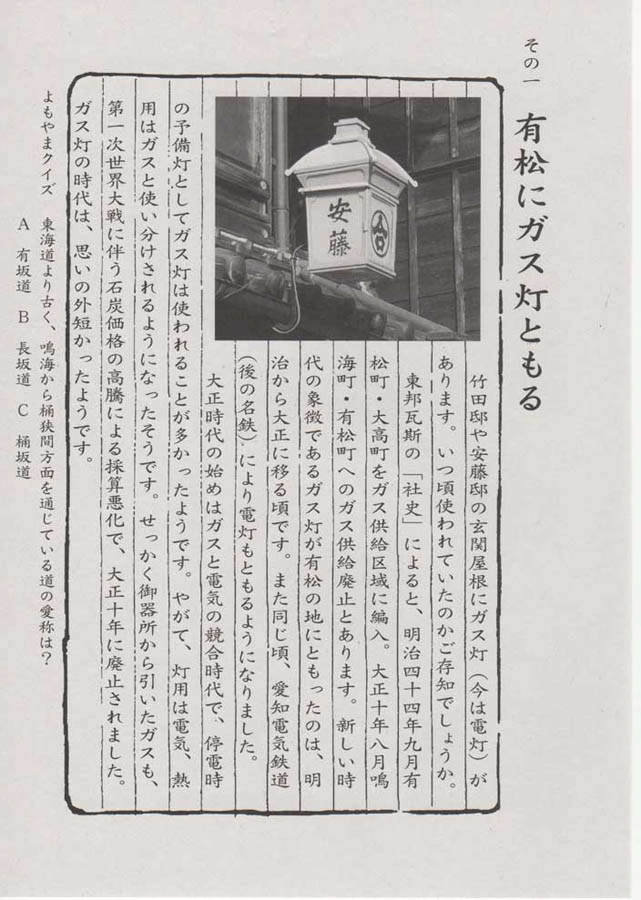 その一
有松にガス灯ともる
安藤
竹田邸や安藤邸の玄関屋根にガス灯（今は電灯）が
あります。いつ頃使われていたのかご存知でしょうか。
東邦瓦斯の「社史」によると、明治四十四年九月有
松町・大高町をガス供給区域に編入。大正十年八月鳴
海町・有松町へのガス供給廃止とあります。新しい時
代の象徴であるガス灯が有松の地にともったのは、明
治から大正に移る頃です。また同じ頃、愛知電気鉄道
（後の名鉄）により電灯もともるようになりました。
大正時代の始めはガスと電気の競合時代で、停電時
の予備灯としてガス灯は使われることが多かったようです。やがて、灯用は電気、熱
用はガスと使い分けされるようになったそうです。せっかく御器所から引いたガスも、
第一次世界大戦に伴う石炭価格の高騰による採算悪化で、大正十年に廃止されました。
ガス灯の時代は、思いの外短かったようです。
よもやまクイズ　東海道より古く、鳴海から桶狭間方面を通じている道の愛称は？
A　有坂道　B　長坂道　C　桶坂道